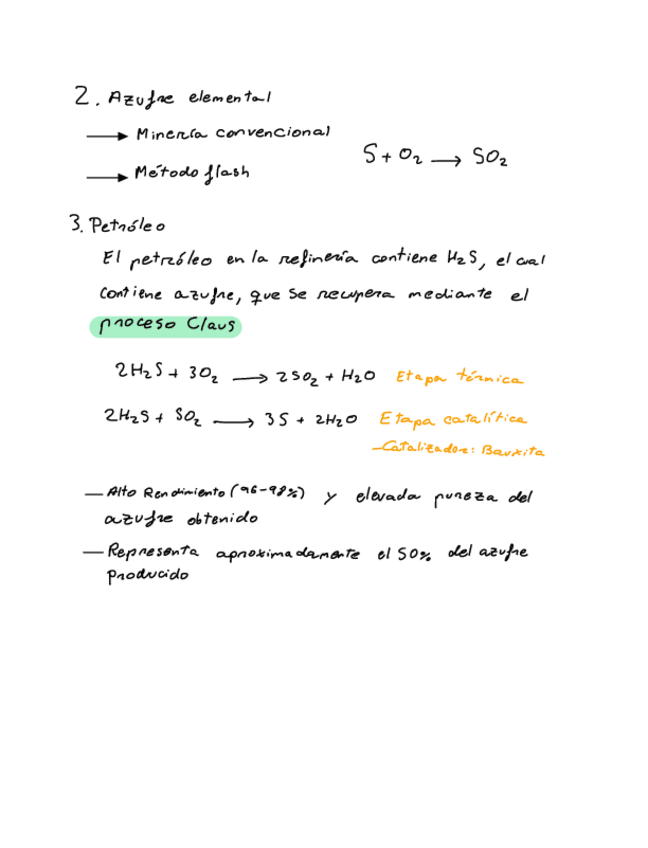 2. Azufre elemental
→ Minería convencional
S + O₂ → SO₂
→ Método flash
3. Petróleo
El petróleo en la refinería contiene H₂S, el cual
contiene azufre, que se recupera mediante el
proceso Claus
2H₂S + 3O₂ → 2SO₂ + H₂O Etapa térmica
2H₂S + SO₂ → 3S + 2H₂O Etapa catalítica
-Catalizador: Bauxita
— Alto Rendimiento (96-98%) y elevada pureza del
azufre obtenido
— Representa aproximadamente el 50% del azufre
producido